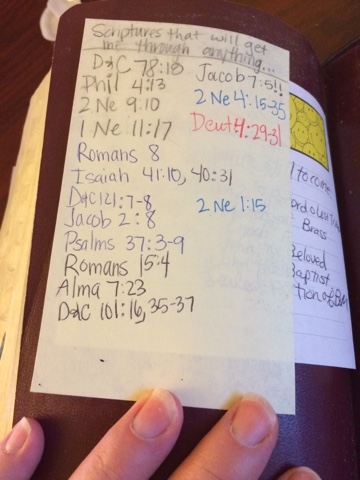 Scriptures that will get
me through anything...
D&C 78:18
Phil 4:13
2 Ne 9:10
1 Ne 11:17
Romans 8
Isaiah 41:10, 40:31
D&C 121:7-8
Jacob 2:8
Psalms 37:3-9
Romans 15:4
Alma 7:23
D&C 101:16, 35-37
Jacob 7:5!!
2 Ne 4:15-35
Deut 4:29-31
2 Ne 1:15
to come
Brass
Beloved
Baptist